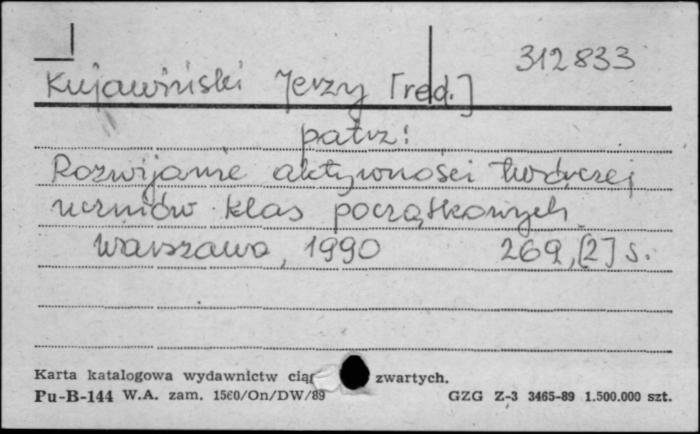 312833
Kujawiński Jerzy [red.]
patrz:
Rozwijanie aktywności twórczej
uczniów klas początkowych
Warszawa, 1990 269, [2] s.
Karta katalogowa wydawnictw zwartych.
Pu-B-144 W.A. zam. 1560/On/DW/89 GZG Z-3 3465-89 1.500.000 szt.